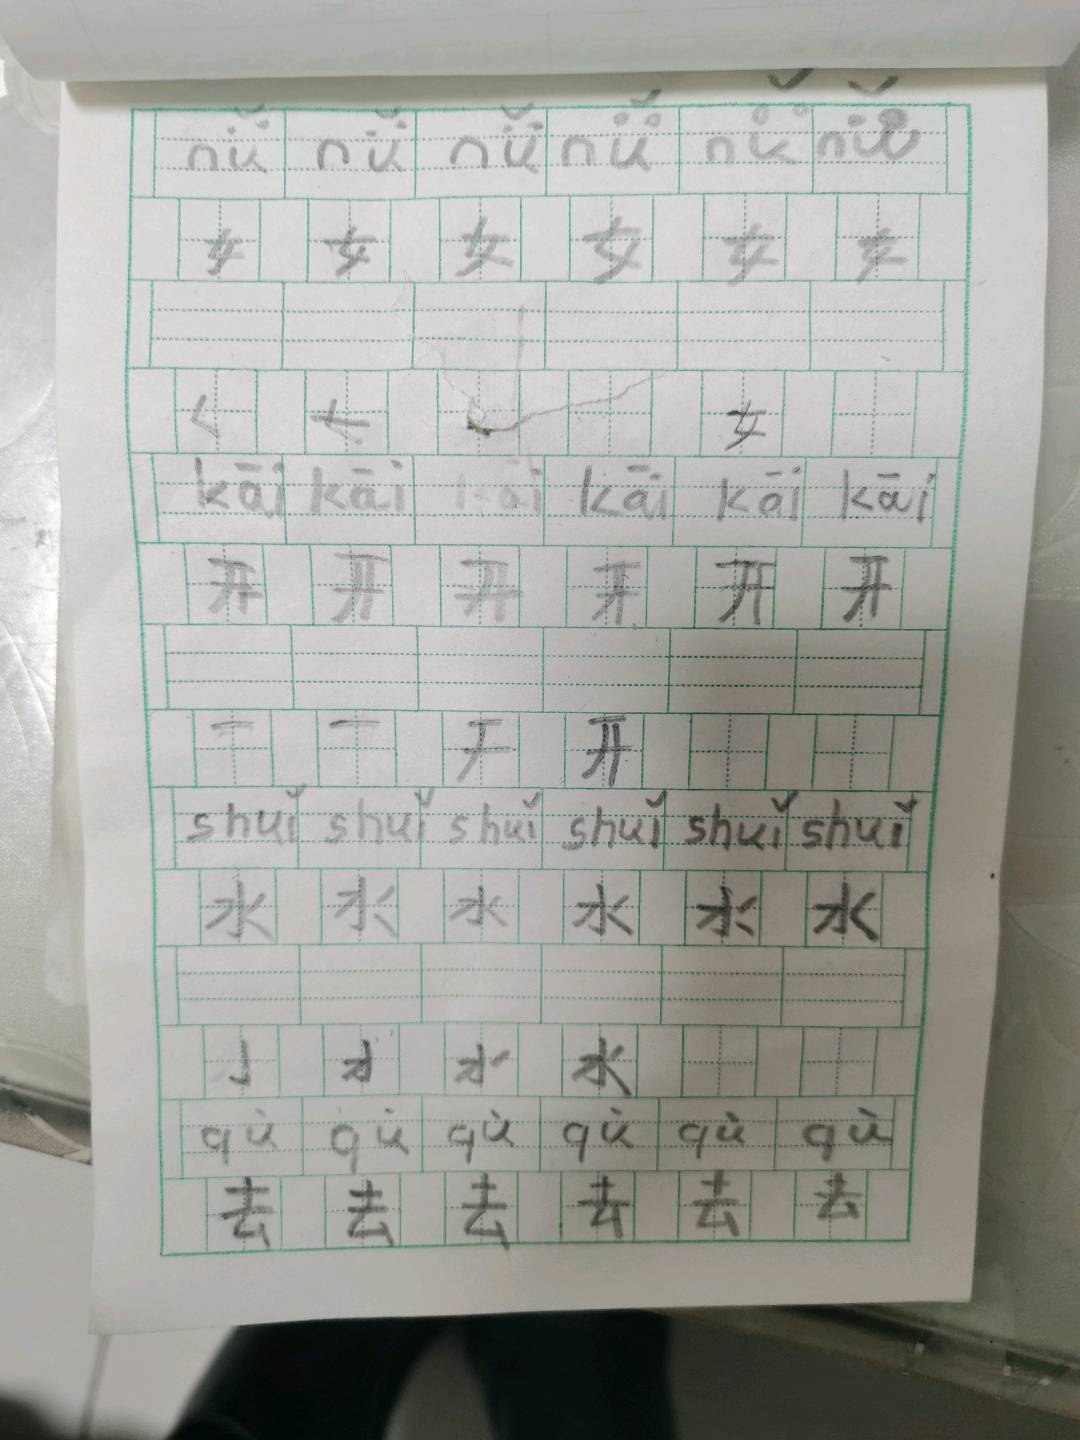 nǚ nǚ nǚ nǚ nǚ nǚ
女 女 女 女 女 女
𡿨 𠂉 女
kāi kāi kāi kāi kāi kāi
开 开 开 开 开 开
一 一 开
shuǐ shuǐ shuǐ shuǐ shuǐ shuǐ
水 水 水 水 水 水
亅 水
qù qù qù qù qù qù
去 去 去 去 去 去